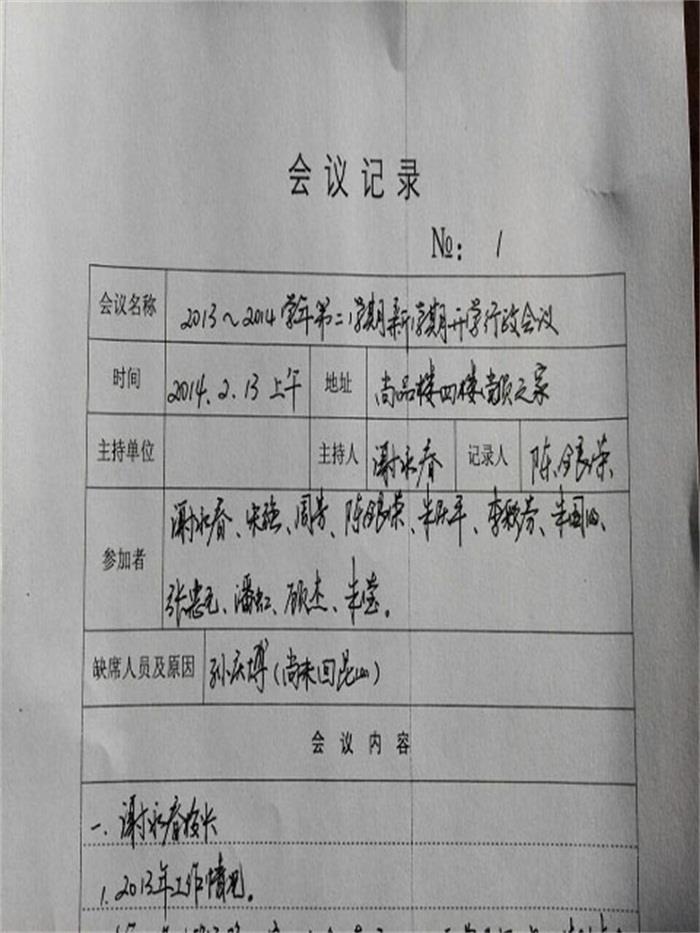 会议记录
№: 1
会议名称 2013～2014学年第二学期新学期开学行政会议
时间 2014.2.13上午 地址 尚品楼四楼
主持单位 主持人 谢永春 记录人 陈银荣
参加者 谢永春、宋强、周芳、陈银荣、朱庆平、李彩芬、朱国
张忠元、潘虹、顾杰、朱莹。
缺席人员及原因 孙庆博(尚未回昆山)
会议内容
一. 谢永春校长
1. 2013年工作情况。